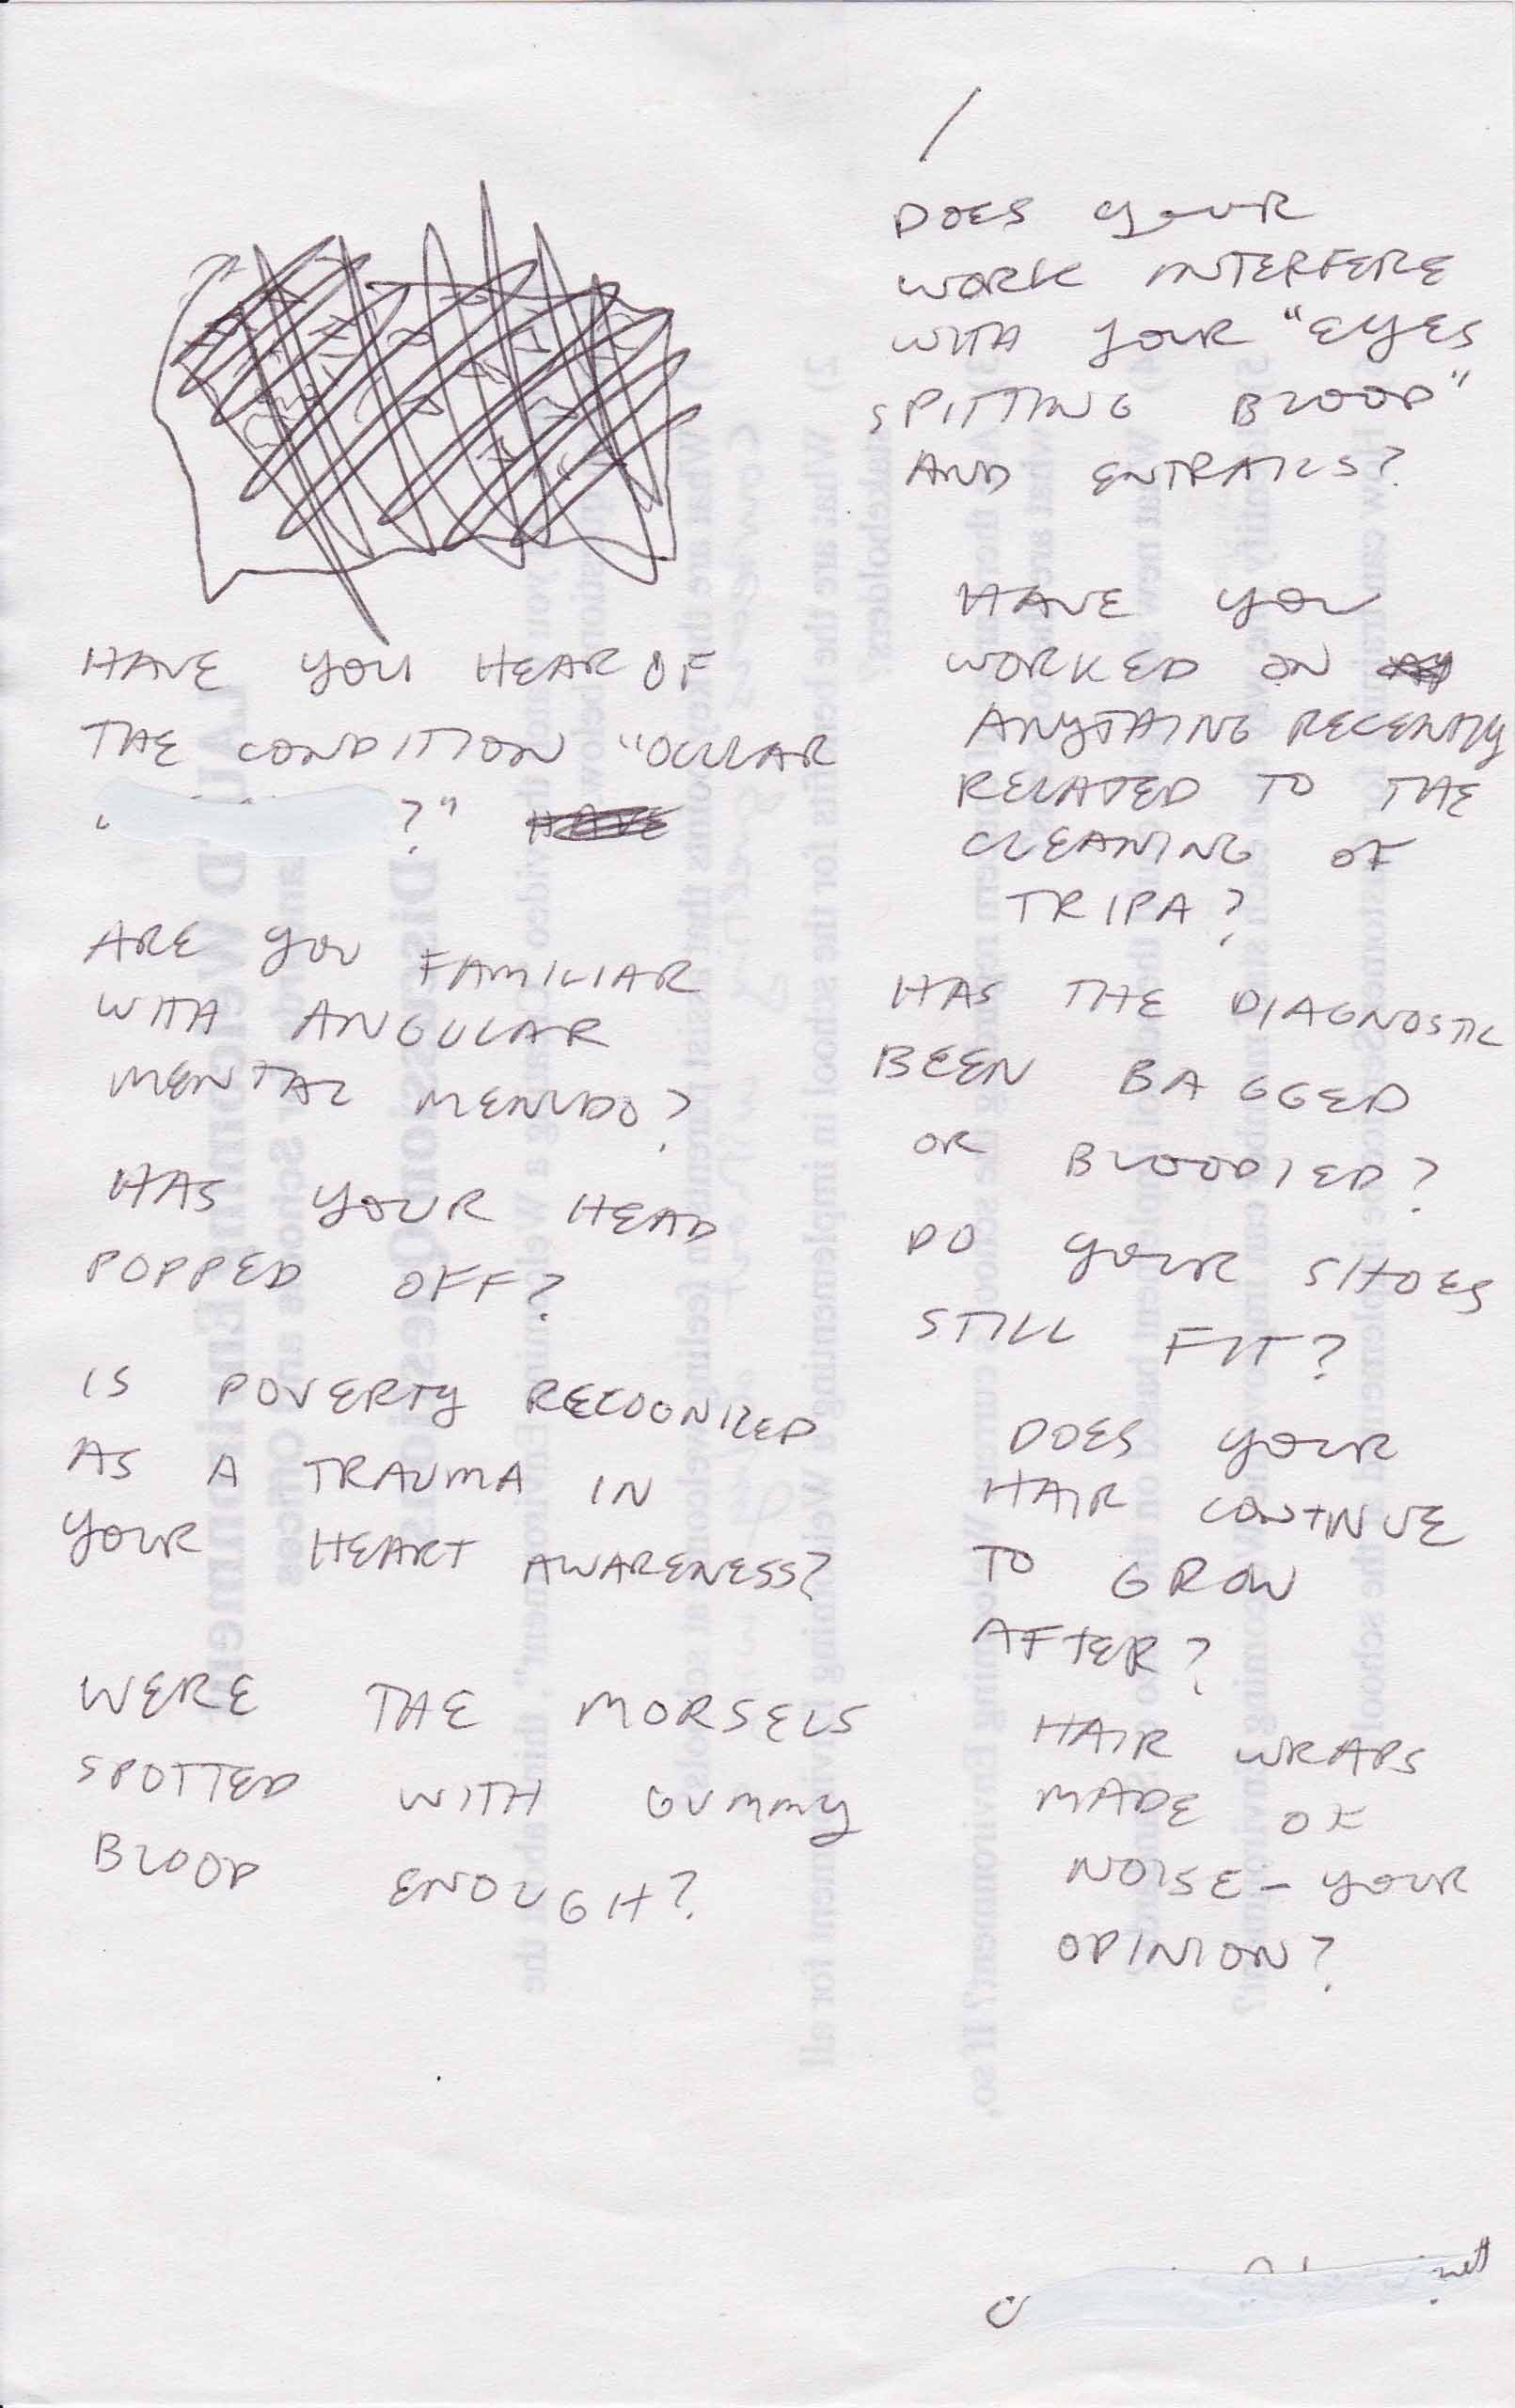 HAVE YOU HEAR OF
THE CONDITION "OCULAR
?"
ARE YOU FAMILIAR
WITH ANGULAR
MENTAL MENUDO?
HAS YOUR HEAD
POPPED OFF?
IS POVERTY RECOGNIZED
AS A TRAUMA IN
YOUR HEART AWARENESS?
WERE THE MORSELS
SPOTTED WITH GUMMY
BLOOD ENOUGH?
/
DOES YOUR
WORK INTERFERE
WITH YOUR "EYES
SPITTING BLOOD"
AND ENTRAILS?
HAVE YOU
WORKED ON
ANYTHING RECENTLY
RELATED TO THE
CLEANING OF
TRIPA?
HAS THE DIAGNOSTIC
BEEN BAGGED
OR BLOODIED?
DO YOUR SHOES
STILL FIT?
DOES YOUR
HAIR CONTINUE
TO GROW
AFTER?
HAIR WRAPS
MADE OF
NOISE – YOUR
OPINION?